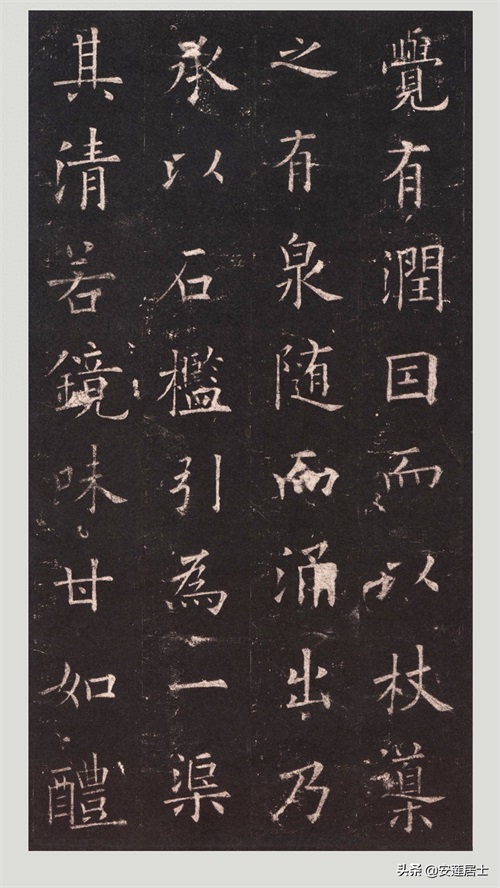 覺有潤囙而以杖導
之有泉随而涌出乃
承以石檻引為一渠
其清若鏡味甘如醴
头条 @安莲居士